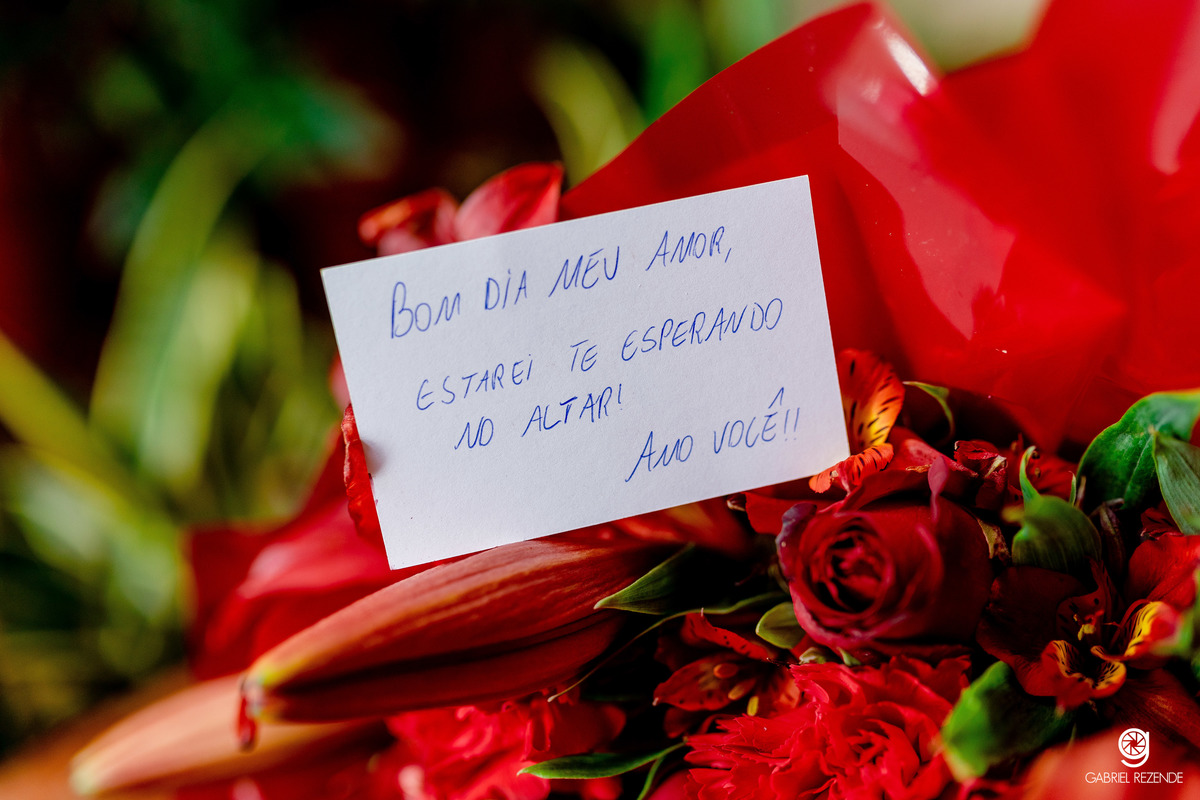 BOM DIA MEU AMOR,
ESTAREI TE ESPERANDO
NO ALTAR!
AMO VOCÊ!!
GABRIEL REZENDE